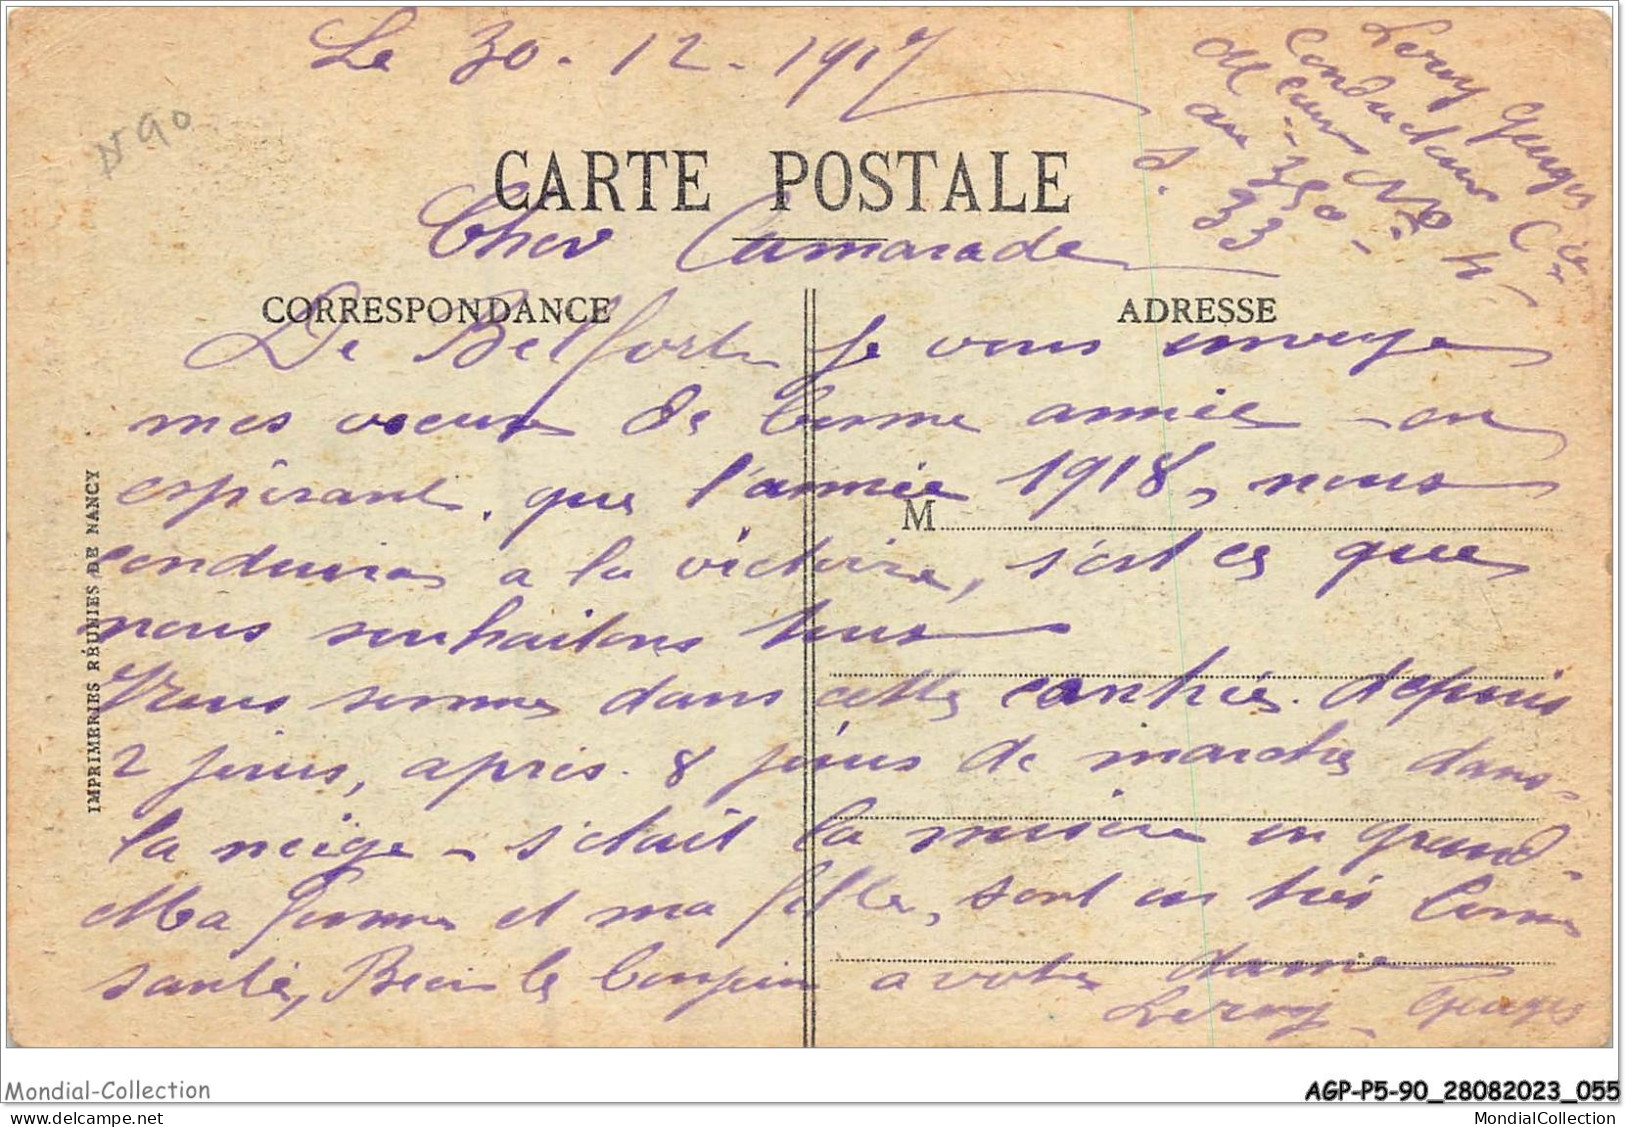 Le 30-12-1917
Leroy Georges
Conducteur Cie
N90
CARTE POSTALE
Cher Camarade
CORRESPONDANCE
ADRESSE
De Belfort je vous envoye
mes voeux de bonne année - en
espérant, que l'année 1918, nous
conduira a la victoire, s'est ce que
nous souhaitons tous
M
Nous sommes dans cette contrée. depuis
2 jours, après. 8 jours de marche dans
la neige - s'était la misère en grand.
Ma femme et ma fille, sont en très bonne
santé, Bien le bonjour a votre dame
Leroy Georges
IMPRIMERIES RÉUNIES DE NANCY
Mondial-Collection
AGP-P5-90_28082023_055
MondialCollection